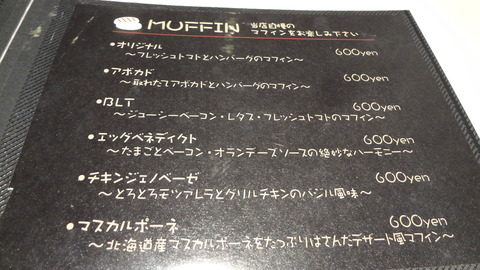 MUFFIN 当店自慢の
マフィンをお楽しみ下さい
•オリジナル 600yen
～フレッシュトマトとハンバーグのマフィン～
•アボカド 600yen
～取れたてアボカドとハンバーグのマフィン～
•BLT 600yen
～ジューシーベーコン・レタス・フレッシュトマトのマフィン～
•エッグベネディクト 600yen
～たまごとベーコン・オランデーズソースの絶妙なハーモニー～
•チキンジェノベーゼ 600yen
～とろとろモツァレラとグリルチキンのバジル風味～
•マスカルポーネ 600yen
～北海道産マスカルポーネをたっぷりはさんだデザート風マフィン～